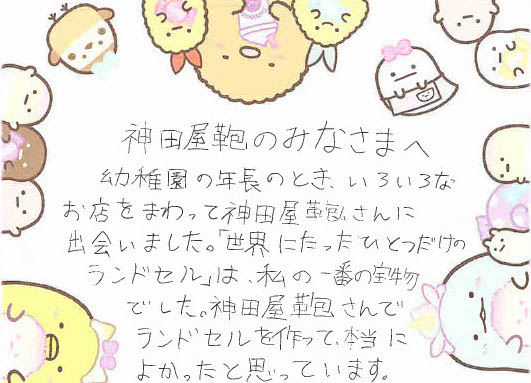 神田屋鞄のみなさまへ
幼稚園の年長のとき、いろいろな
お店をまわって神田屋鞄さんに
出会いました。「世界にたったひとつだけの
ランドセル」は、私の一番の宝物
でした。神田屋鞄さんで
ランドセルを作って、本当に
よかったと思っています。